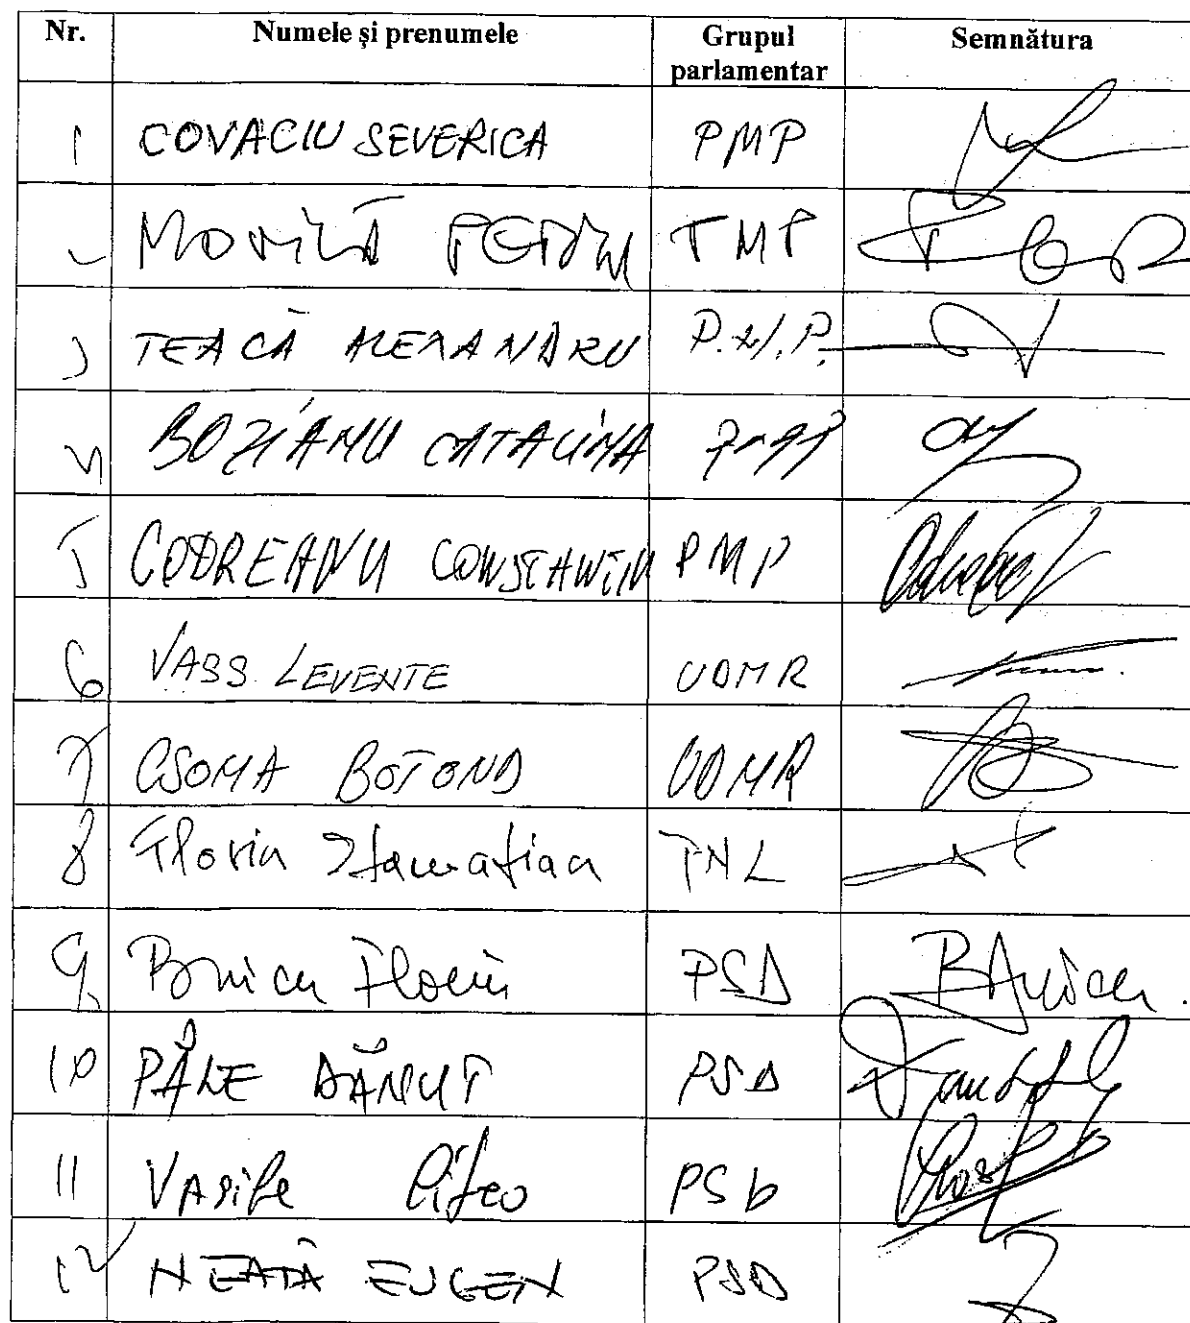 Nr. Numele și prenumele Grupul parlamentar Semnătura
1 COVACIU SEVERICA PMP
2 MOVILĂ PETRU PMP
3 TEACĂ ALEXANDRU P.M.P.
4 BOZIANU CATALINA PMP
5 CODREANU CONSTANTIN PMP
6 VASS LEVENTE UDMR
7 CSOMA BOTOND UDMR
8 Florin Stamatian PNL
9 Florin PSD
10 PÂLE DĂNUȚ PSD
11 VAsile PSD
12 NEAȚĂ EUGEN PSD